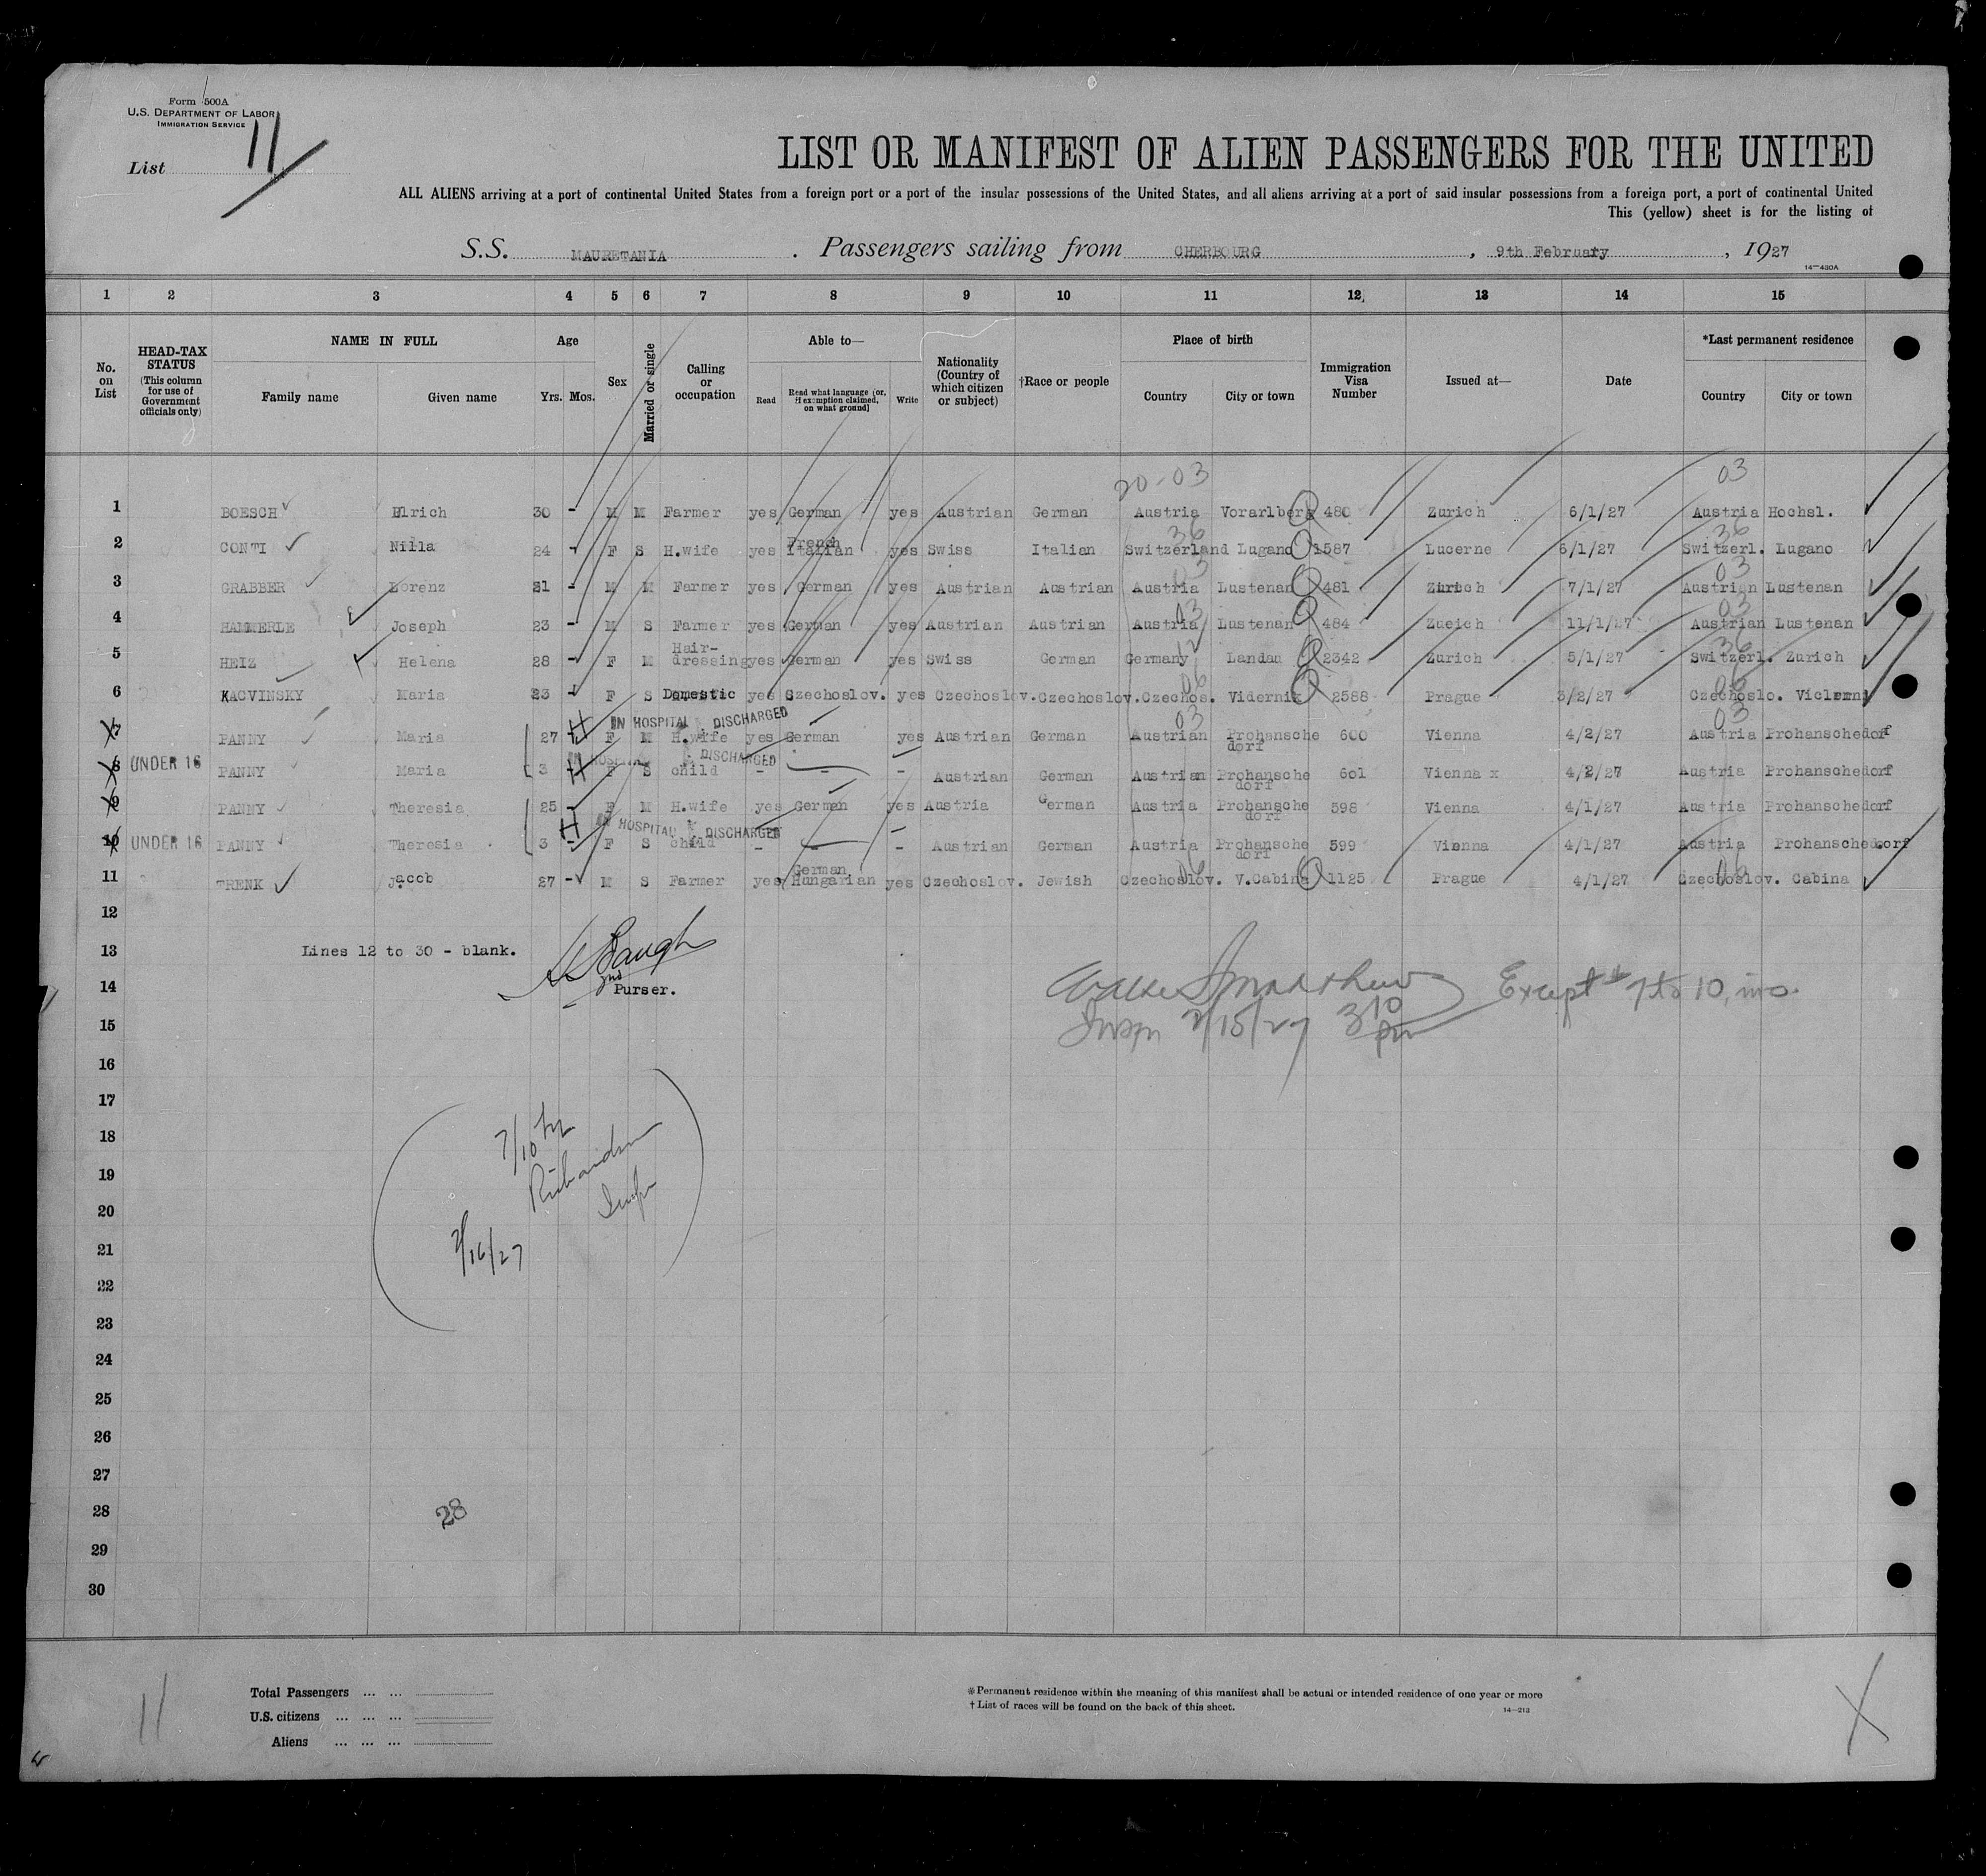 Form 500A
U.S. DEPARTMENT OF LABOR
IMMIGRATION SERVICE
List 11
LIST OR MANIFEST OF ALIEN PASSENGERS FOR THE UNITED
ALL ALIENS arriving at a port of continental United States from a foreign port or a port of the insular possessions of the United States, and all aliens arriving at a port of said insular possessions from a foreign port, a port of continental United
This (yellow) sheet is for the listing of
S.S. MAURETANIA . Passengers sailing from CHERBOURG , 9th February , 1927
14—430A
1 2 3 4 5 6 7 8 9 10 11 12 13 14 15
No. on List
HEAD-TAX STATUS (This column for use of Government officials only)
NAME IN FULL
Family name Given name
Age
Yrs. Mos.
Sex
Married or single
Calling or occupation
Able to—
Read Read what language [or, if exemption claimed, on what ground] Write
Nationality (Country of which citizen or subject)
†Race or people
Place of birth
Country City or town
Immigration Visa Number
Issued at—
Date
*Last permanent residence
Country City or town
20-03 03
1 BOESCH Ulrich 30 - M M Farmer yes German yes Austrian German Austria Vorarlberg 480 Zurich 6/1/27 Austria Hochsl.
French 36 36
2 CONTI Nilla 24 - F S H.wife yes Italian yes Swiss Italian Switzerland Lugano 1587 Lucerne 6/1/27 Switzerl. Lugano
03 03
3 GRABBER Lorenz 31 - M M Farmer yes German yes Austrian Austrian Austria Lustenan 481 Zurich 7/1/27 Austrian Lustenan
03 03
4 HAMMERLE Joseph 23 - M S Farmer yes German yes Austrian Austrian Austria Lustenan 484 Zueich 11/1/27 Austrian Lustenan
Hair- 12 36
5 HEIZ Helena 28 - F M dressing yes German yes Swiss German Germany Landau 2342 Zurich 5/1/27 Switzerl. Zurich
06 06
6 KACVINSKY Maria 23 - F S Domestic yes Czechoslov. yes Czechoslov. Czechoslov. Czechos. Vidernik 2588 Prague 3/2/27 Czechoslo.
H IN HOSPITAL DISCHARGED 03 03
7 PANNY Maria 27 F M H.wife yes German yes Austrian German Austrian Prohansche dorf 600 Vienna 4/2/27 Austria Prohanschedorf
H IN HOSPITAL DISCHARGED
8 UNDER 16 PANNY Maria 3 - F S child - - - Austrian German Austrian Prohansche dorf 601 Vienna x 4/2/27 Austria Prohanschedorf
9 PANNY Theresia 25 - F M H.wife yes German yes Austria German Austria Prohansche dorf 598 Vienna 4/1/27 Austria Prohanschedorf
H IN HOSPITAL DISCHARGED
10 UNDER 16 PANNY Theresia 3 - F S child - - - Austrian German Austria Prohansche dorf 599 Vienna 4/1/27 Austria Prohanschedorf
German 06 06
11 TRENK Jacob 27 - M S Farmer yes Hungarian yes Czechoslov. Jewish Czechoslov. V.Cabina 1125 Prague 4/1/27 Czechoslov. Cabina
12
13 Lines 12 to 30 - blank. Baugh
14 2nd Purser. Except # 7 to 10, inc.
15 Insp 2/15/27 3 10 pm
16
17
18 7/10 by
19 Richardson
20 Insp
21 2/16/27
22
23
24
25
26
27
28 28
29
30
11
Total Passengers
U.S. citizens
Aliens
*Permanent residence within the meaning of this manifest shall be actual or intended residence of one year or more
†List of races will be found on the back of this sheet.
14—213
X